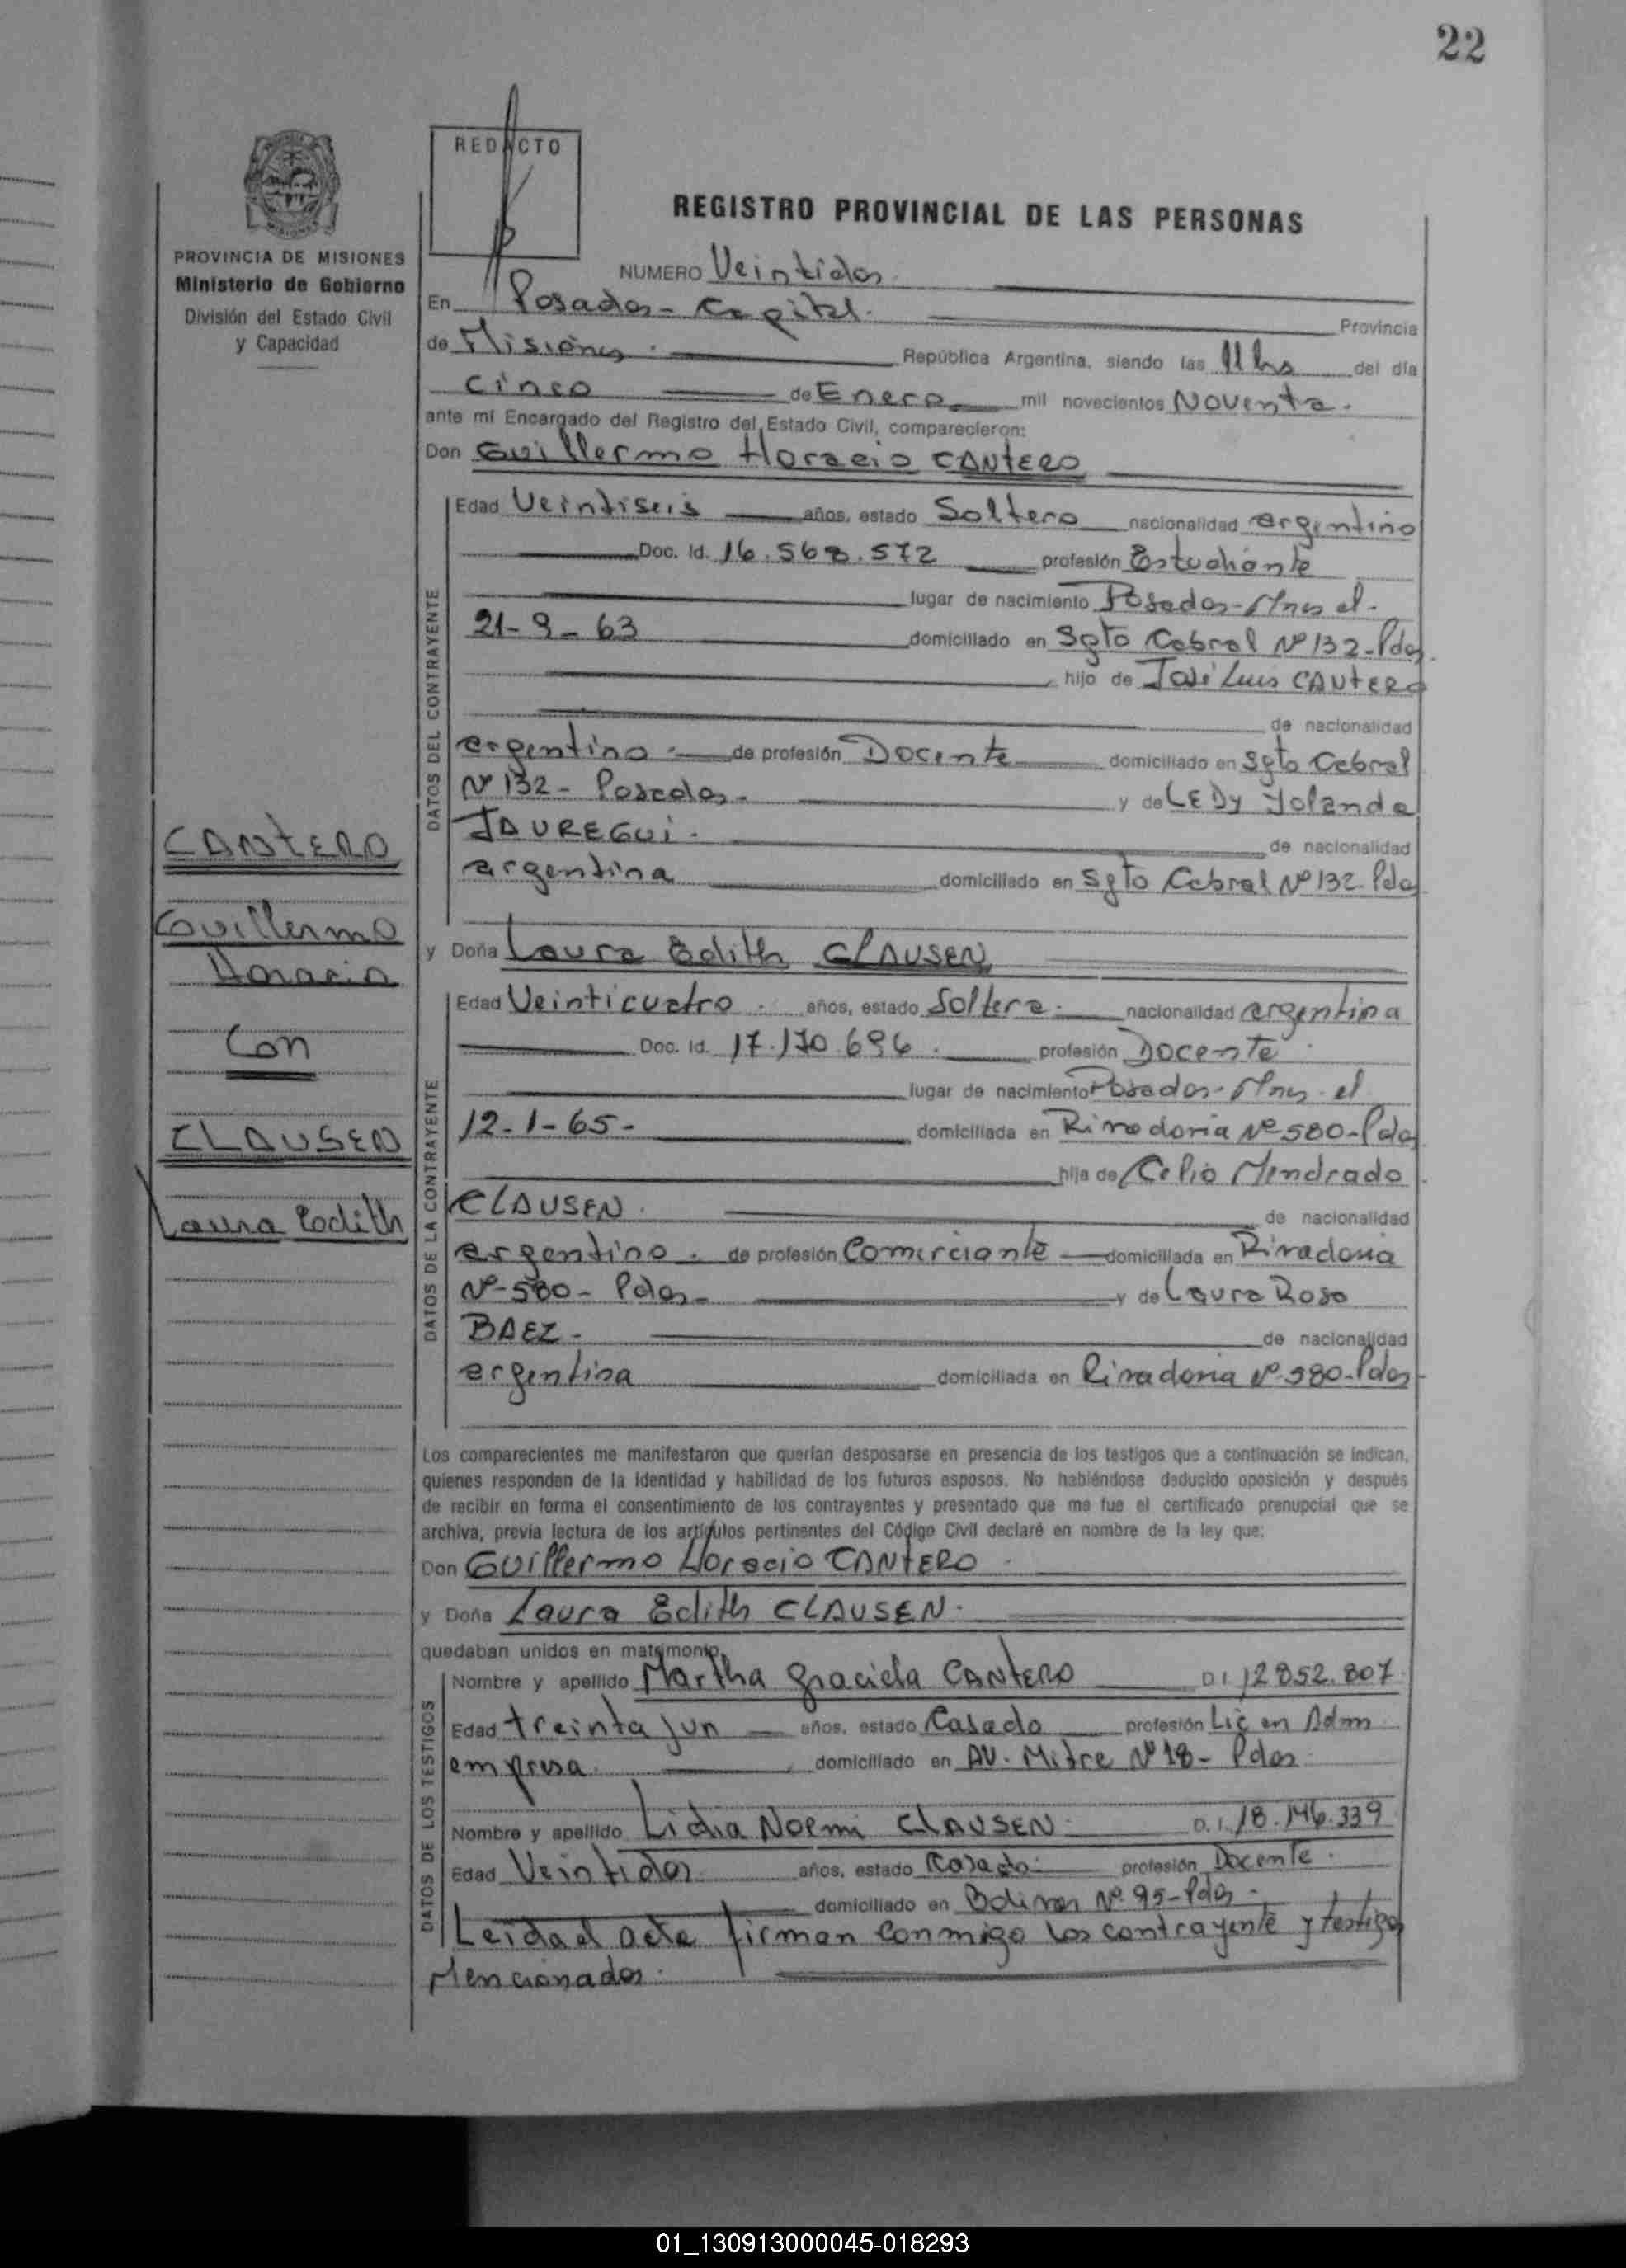 22
REDACTO
REGISTRO PROVINCIAL DE LAS PERSONAS
PROVINCIA DE MISIONES
Ministerio de Gobierno
División del Estado Civil
y Capacidad
NUMERO Veintidos.
En Posadas - Capital. Provincia
de Misiones. República Argentina, siendo las 11 hs del día
cinco de Enero mil novecientos Noventa.
ante mí Encargado del Registro del Estado Civil, comparecieron:
Don Guillermo Horacio CANTERO
DATOS DEL CONTRAYENTE
Edad Veintiseis años, estado Soltero nacionalidad argentino
Doc. Id. 16.568.572 profesión Estudiante
lugar de nacimiento Posadas-Mnes el-
21-9-63 domiciliado en Sgto Cabral Nº 132-Pdas
hijo de José Luis CANTERO
de nacionalidad
argentino.- de profesión Docente domiciliado en Sgto Cabral
Nº 132 - Posadas- y de LEDY Yolanda
JAUREGUI. de nacionalidad
argentina domiciliado en Sgto Cabral Nº 132 Pdas
y Doña Laura Edith CLAUSEN
DATOS DE LA CONTRAYENTE
Edad Veinticuatro. años, estado Soltera. nacionalidad argentina
Doc. Id. 17.170.696. profesión Docente
lugar de nacimiento Posadas-Mnes. el
12-1-65- domiciliada en Rivadavia Nº 580-Pdas
hija de Celio Mendrado
CLAUSEN. de nacionalidad
argentino. de profesión Comerciante domiciliada en Rivadavia
Nº-580- Pdas- y de Laura Rosa
BAEZ- de nacionalidad
argentina domiciliada en Rivadavia Nº 580-Pdas-
CANTERO
Guillermo
Horacio
Con
CLAUSEN
Laura Edith
Los comparecientes me manifestaron que querían desposarse en presencia de los testigos que a continuación se indican,
quienes responden de la identidad y habilidad de los futuros esposos. No habiéndose deducido oposición y después
de recibir en forma el consentimiento de los contrayentes y presentado que me fue el certificado prenupcial que se
archiva, previa lectura de los artículos pertinentes del Código Civil declaré en nombre de la ley que:
Don Guillermo Horacio CANTERO.
y Doña Laura Edith CLAUSEN.
quedaban unidos en matrimonio.
DATOS DE LOS TESTIGOS
Nombre y apellido Martha Graciela CANTERO D.I. 12.852.807
Edad treinta y un años, estado Casado profesión Lic en Adm
empresa. domiciliado en AV. Mitre Nº 18- Pdas.
Nombre y apellido Lidia Noemi CLAUSEN D.I. 18.146.339
Edad Veintidos. años, estado Casada profesión Docente.
domiciliado en Bolivar Nº 95-Pdas-
Leida el acta firman conmigo los contrayente y testigos
Mencionados.
01_130913000045-018293